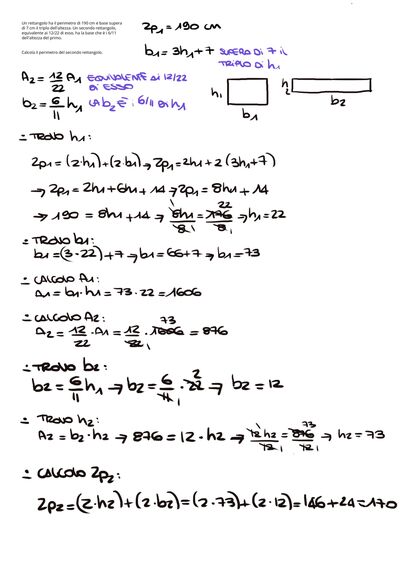 Un rettangolo ha il perimetro di 190 cm e base supera
di 7 cm il triplo dell'altezza. Un secondo rettangolo,
equivalente ai 12/22 di esso, ha la base che è i 6/11
dell'altezza del primo.
Calcola il perimetro del secondo rettangolo.
2p₁ = 190 cm
b₁ = 3h₁+7 SUPERA DI 7 IL
TRIPLO DI h₁
A₂ = 12/22 A₁ EQUIVALENTE AI 12/22
DI ESSO
b₂ = 6/11 h₁ LA b₂ È i 6/11 DI h₁
h₁
b₁
h₂
b₂
÷ TROVO h₁:
2p₁ = (2·h₁)+(2·b₁) → 2p₁ = 2h₁+2(3h₁+7)
→ 2p₁ = 2h₁+6h₁+14 → 2p₁ = 8h₁+14
→ 190 = 8h₁+14 → 8h₁/8 = 176/8 → h₁ = 22
1 22
1 1
÷ TROVO b₁:
b₁ = (3·22)+7 → b₁ = 66+7 → b₁ = 73
÷ CALCOLO A₁:
A₁ = b₁·h₁ = 73·22 = 1606
÷ CALCOLO A₂:
73
A₂ = 12/22 · A₁ = 12/22 · 1606 = 876
1
÷ TROVO b₂:
2
b₂ = 6/11 h₁ → b₂ = 6/11 · 22 → b₂ = 12
1
÷ TROVO h₂:
73
A₂ = b₂·h₂ → 876 = 12·h₂ → 12h₂/12 = 876/12 → h₂ = 73
1 1
÷ CALCOLO 2p₂:
2p₂ = (2·h₂)+(2·b₂) = (2·73)+(2·12) = 146+24 = 170